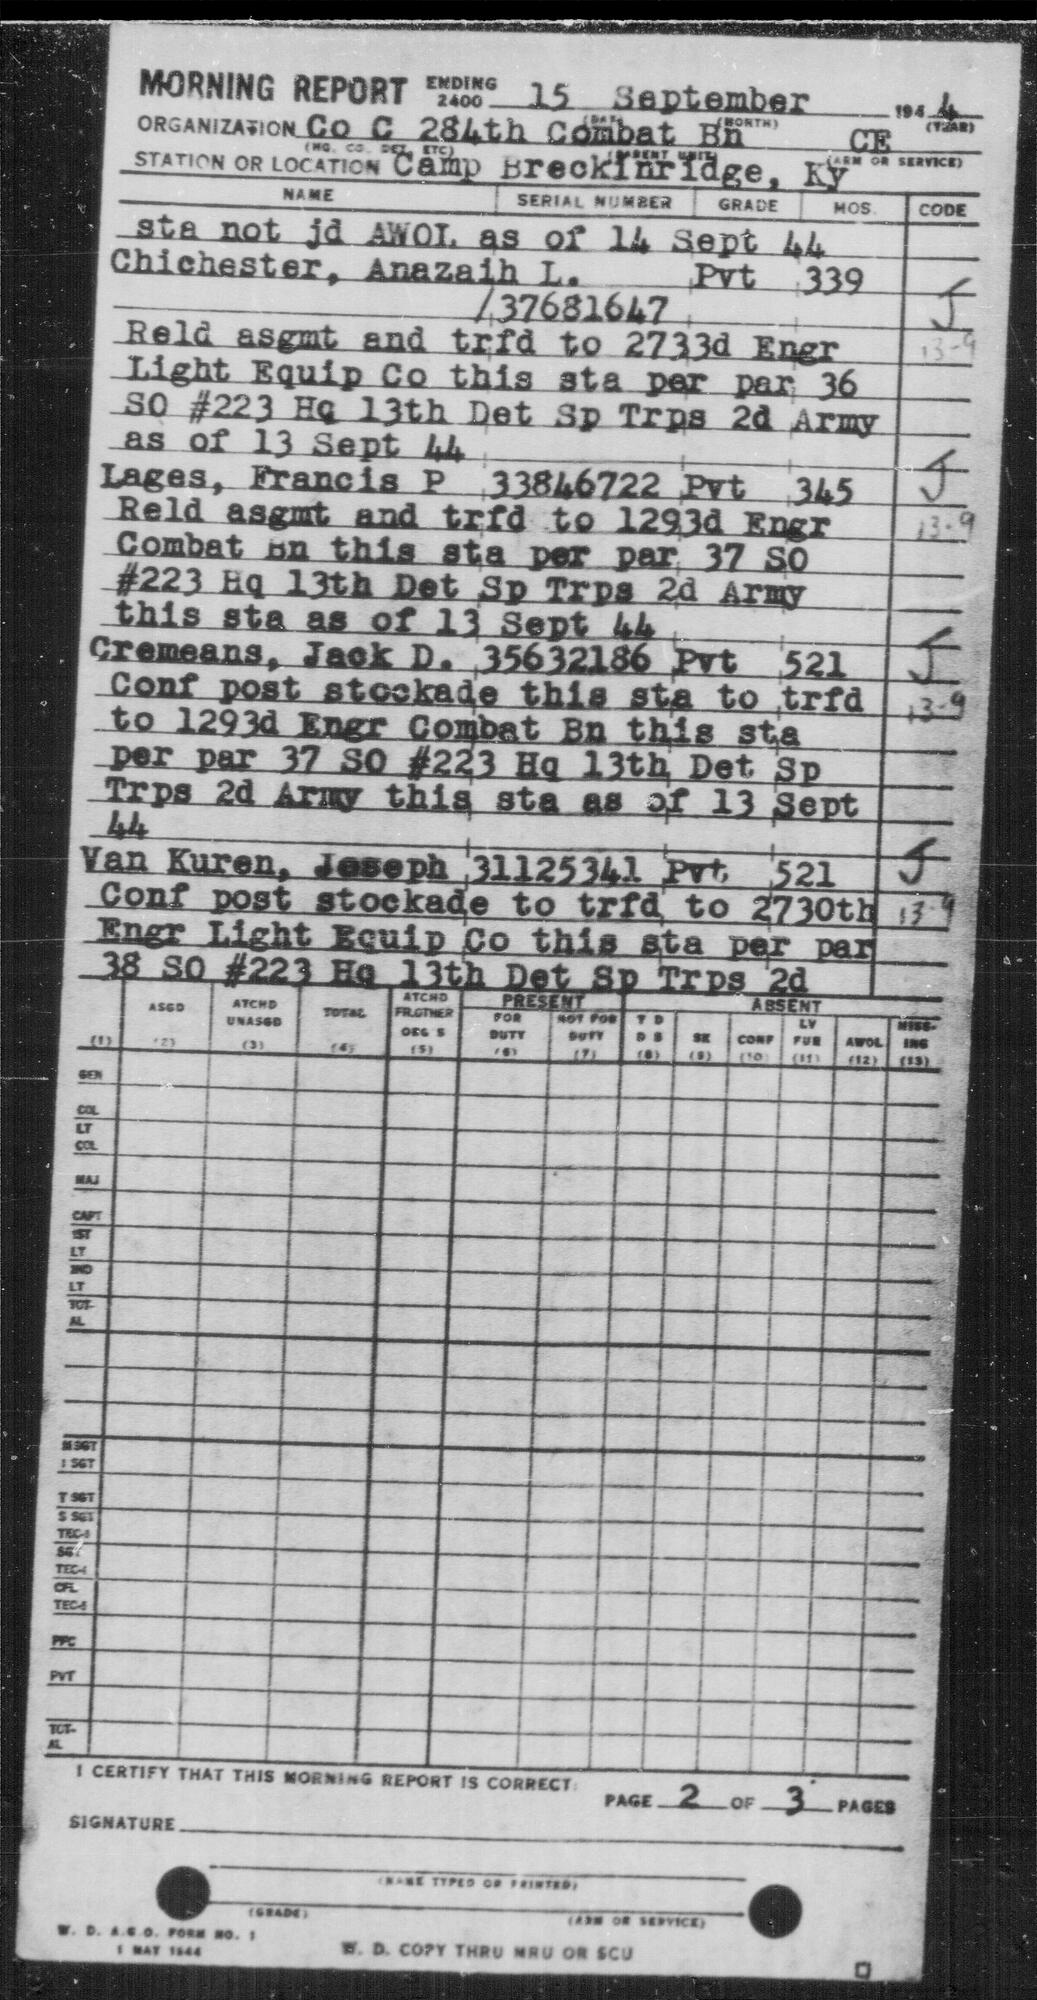 MORNING REPORT ENDING 2400 15 September 1944
(DAY) (MONTH) (YEAR)
ORGANIZATION Co C 284th Combat Bn CE
(HQ. CO. DET. ETC) (PARENT UNIT) (ARM OR SERVICE)
STATION OR LOCATION Camp Breckinridge, Ky
NAME SERIAL NUMBER GRADE MOS. CODE
sta not jd AWOL as of 14 Sept 44
Chichester, Anazaih L. Pvt 339
/37681647 J
Reld asgmt and trfd to 2733d Engr 13-9
Light Equip Co this sta per par 36
SO #223 Hq 13th Det Sp Trps 2d Army
as of 13 Sept 44
Lages, Francis P 33846722 Pvt 345 J
Reld asgmt and trfd to 1293d Engr 13-9
Combat Bn this sta per par 37 SO
#223 Hq 13th Det Sp Trps 2d Army
this sta as of 13 Sept 44
Cremeans, Jack D. 35632186 Pvt 521 J
Conf post stockade this sta to trfd 13-9
to 1293d Engr Combat Bn this sta
per par 37 SO #223 Hq 13th Det Sp
Trps 2d Army this sta as of 13 Sept
44
Van Kuren, Joseph 31125341 Pvt 521 J
Conf post stockade to trfd to 2730th 13-9
Engr Light Equip Co this sta per par
38 SO #223 Hq 13th Det Sp Trps 2d
PRESENT ABSENT
(1) ASGD (2) ATCHD UNASGD (3) TOTAL (4) ATCHD FR.OTHER ORG S (5) FOR DUTY (6) NOT FOR DUTY (7) T D D S (8) SK (9) CONF (10) LV FUR (11) AWOL (12) MISS- ING (13)
GEN
COL
LT
COL
MAJ
CAPT
1ST
LT
2ND
LT
TOT-
AL
M SGT
1 SGT
T SGT
S SGT
TEC-3
SGT
TEC-4
CPL
TEC-5
PFC
PVT
TOT-
AL
I CERTIFY THAT THIS MORNING REPORT IS CORRECT:
PAGE 2 OF 3 PAGES
SIGNATURE
(NAME TYPED OR PRINTED)
(GRADE) (ARM OR SERVICE)
W. D. A.G.O. FORM NO. 1
1 MAY 1944
W. D. COPY THRU MRU OR SCU